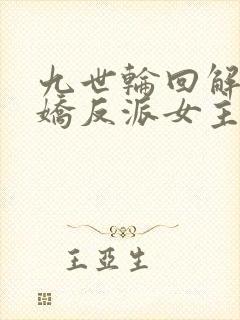 九世輪回解
嬌反派女主
王亞生